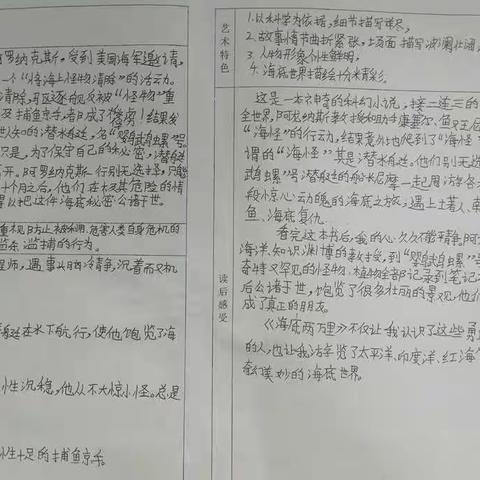 罗纳克斯,受到美国海军邀请,
一个“将海上怪物清除”的活动。
清除,可区逐舰反被“怪物”重
及捕鱼手,者都成了俘虏!结果
世人知的潜水艇,名“鹦鹉螺”号。
只是,为了保守自己的秘密,潜艇
离开。阿罗纳克斯一行别无选择,只能
十个月之后,他们在极其危险的情
得以把这件海底秘密公诸于世。
重视防止被
监捕的行为。
程师,遇事头脑冷静,沉着而又机
艇在水下航行,使他饱览了海
性沉稳,他从不大惊小怪。总是
性十足的捕鱼手。
艺术特色
1.以科学为依据,细节描写详尽,
2.故事情节曲折紧张,场面描写波澜壮阔
3.人物形象个性鲜明,
4.海底世界描绘份外精彩。
读后感受
这是一本神奇的科幻小说,接二连三的
全世界,阿龙纳斯教授和助手康塞尔、鱼叉王尼
“海怪”的行动,结果意外也爬到了“海怪”
谓的“海怪”其是潜水艇。他们别无选
鹉螺”号潜艇的船长尼摩一起周游各
段惊心动魄的海底之旅,遇上土著人、
鱼、海底复仇。
看完这本书后,我的心久久不能平静,阿
海洋知识渊博的教授,到“鹦鹉螺”号
奇特又罕见的怪物、植物全部记录到笔记
后公诸于世,饱览了很多壮丽的景观,他们
成了真正的朋友。
《海底两万里》不仅让我认识了这些勇
的人,也让我游览了太平洋、印度洋、红海
奇幻美妙的海底世界。